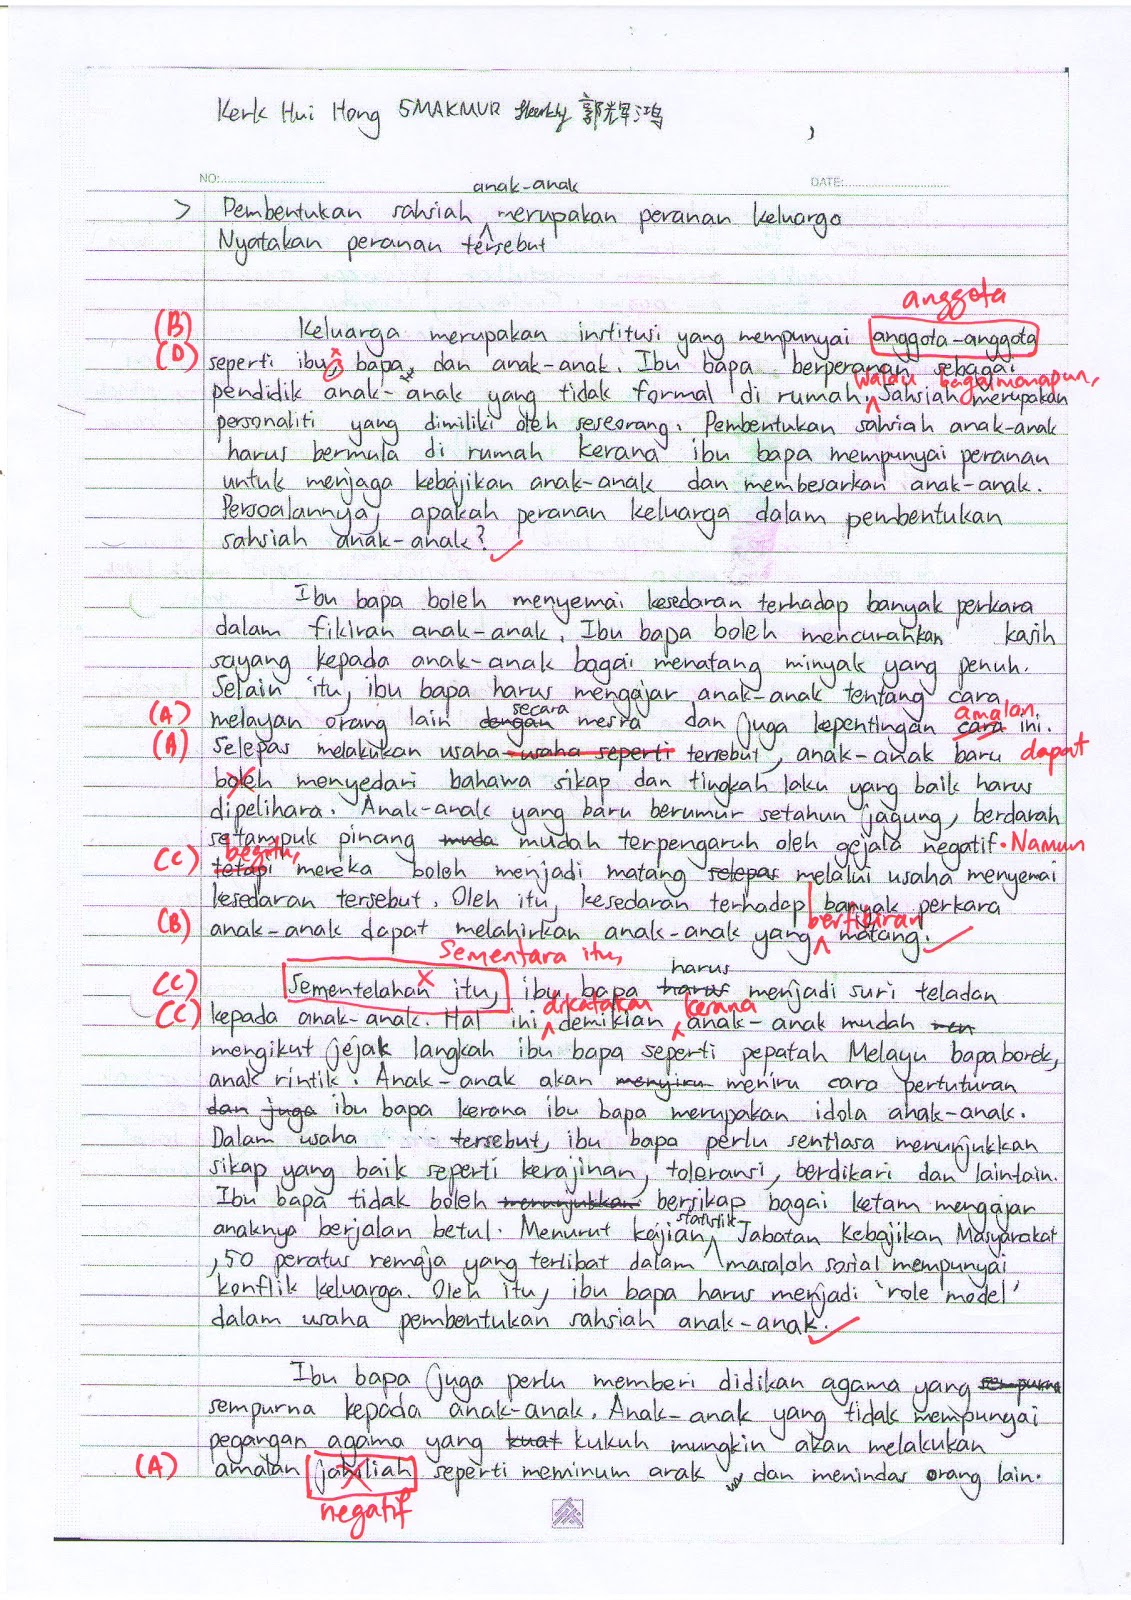 Kerk Hui Hong 5MAKMUR 郭辉鸿
NO:
DATE:
anak-anak
> Pembentukan sahsiah ^ merupakan peranan keluarga
Nyatakan peranan tersebut
anggota
(B) Keluarga merupakan institusi yang mempunyai anggota-anggota
(D) seperti ibu, bapa, dan anak-anak. Ibu bapa berperanan sebagai
Walau bagaimanapun,
pendidik anak-anak yang tidak formal di rumah. ^ Sahsiah merupakan
personaliti yang dimiliki oleh seseorang. Pembentukan sahsiah anak-anak
harus bermula di rumah kerana ibu bapa mempunyai peranan
untuk menjaga kebajikan anak-anak dan membesarkan anak-anak.
Persoalannya, apakah peranan keluarga dalam pembentukan
sahsiah anak-anak?
Ibu bapa boleh menyemai kesedaran terhadap banyak perkara
dalam fikiran anak-anak. Ibu bapa boleh mencurahkan kasih
sayang kepada anak-anak bagai menatang minyak yang penuh.
Selain itu, ibu bapa harus mengajar anak-anak tentang cara
secara amalan
(A) melayan orang lain dengan mesra dan juga kepentingan cara ini.
(A) Selepas melakukan usaha-usaha seperti tersebut, anak-anak baru dapat
boleh menyedari bahawa sikap dan tingkah laku yang baik harus
dipelihara. Anak-anak yang baru berumur setahun jagung, berdarah
setampuk pinang muda mudah terpengaruh oleh gejala negatif. Namun
begitu,
(C) tetapi mereka boleh menjadi matang selepas melalui usaha menyemai
kesedaran tersebut. Oleh itu, kesedaran terhadap banyak perkara
berfikiran
(B) anak-anak dapat melahirkan anak-anak yang ^ matang.
Sementara itu,
harus
(C) Sementelahan itu, ibu bapa harus menjadi suri teladan
dikatakan kerana
(C) kepada anak-anak. Hal ini ^ demikian ^ anak-anak mudah men
mengikut jejak langkah ibu bapa seperti pepatah Melayu bapa borek,
anak rintik. Anak-anak akan menyiru meniru cara pertuturan
dan juga ibu bapa kerana ibu bapa merupakan idola anak-anak.
Dalam usaha tersebut, ibu bapa perlu sentiasa menunjukkan
sikap yang baik seperti kerajinan, toleransi, berdikari dan lain-lain.
Ibu bapa tidak boleh menunjukkan bersikap bagai ketam mengajar
statistik
anaknya berjalan betul. Menurut kajian ^ Jabatan Kebajikan Masyarakat
, 50 peratus remaja yang terlibat dalam masalah sosial mempunyai
konflik keluarga. Oleh itu, ibu bapa harus menjadi 'role model'
dalam usaha pembentukan sahsiah anak-anak.
Ibu bapa juga perlu memberi didikan agama yang sempurna
sempurna kepada anak-anak. Anak-anak yang tidak mempunyai
pegangan agama yang kuat kukuh mungkin akan melakukan
(A) amalan jahiliah seperti meminum arak dan menindas orang lain.
negatif